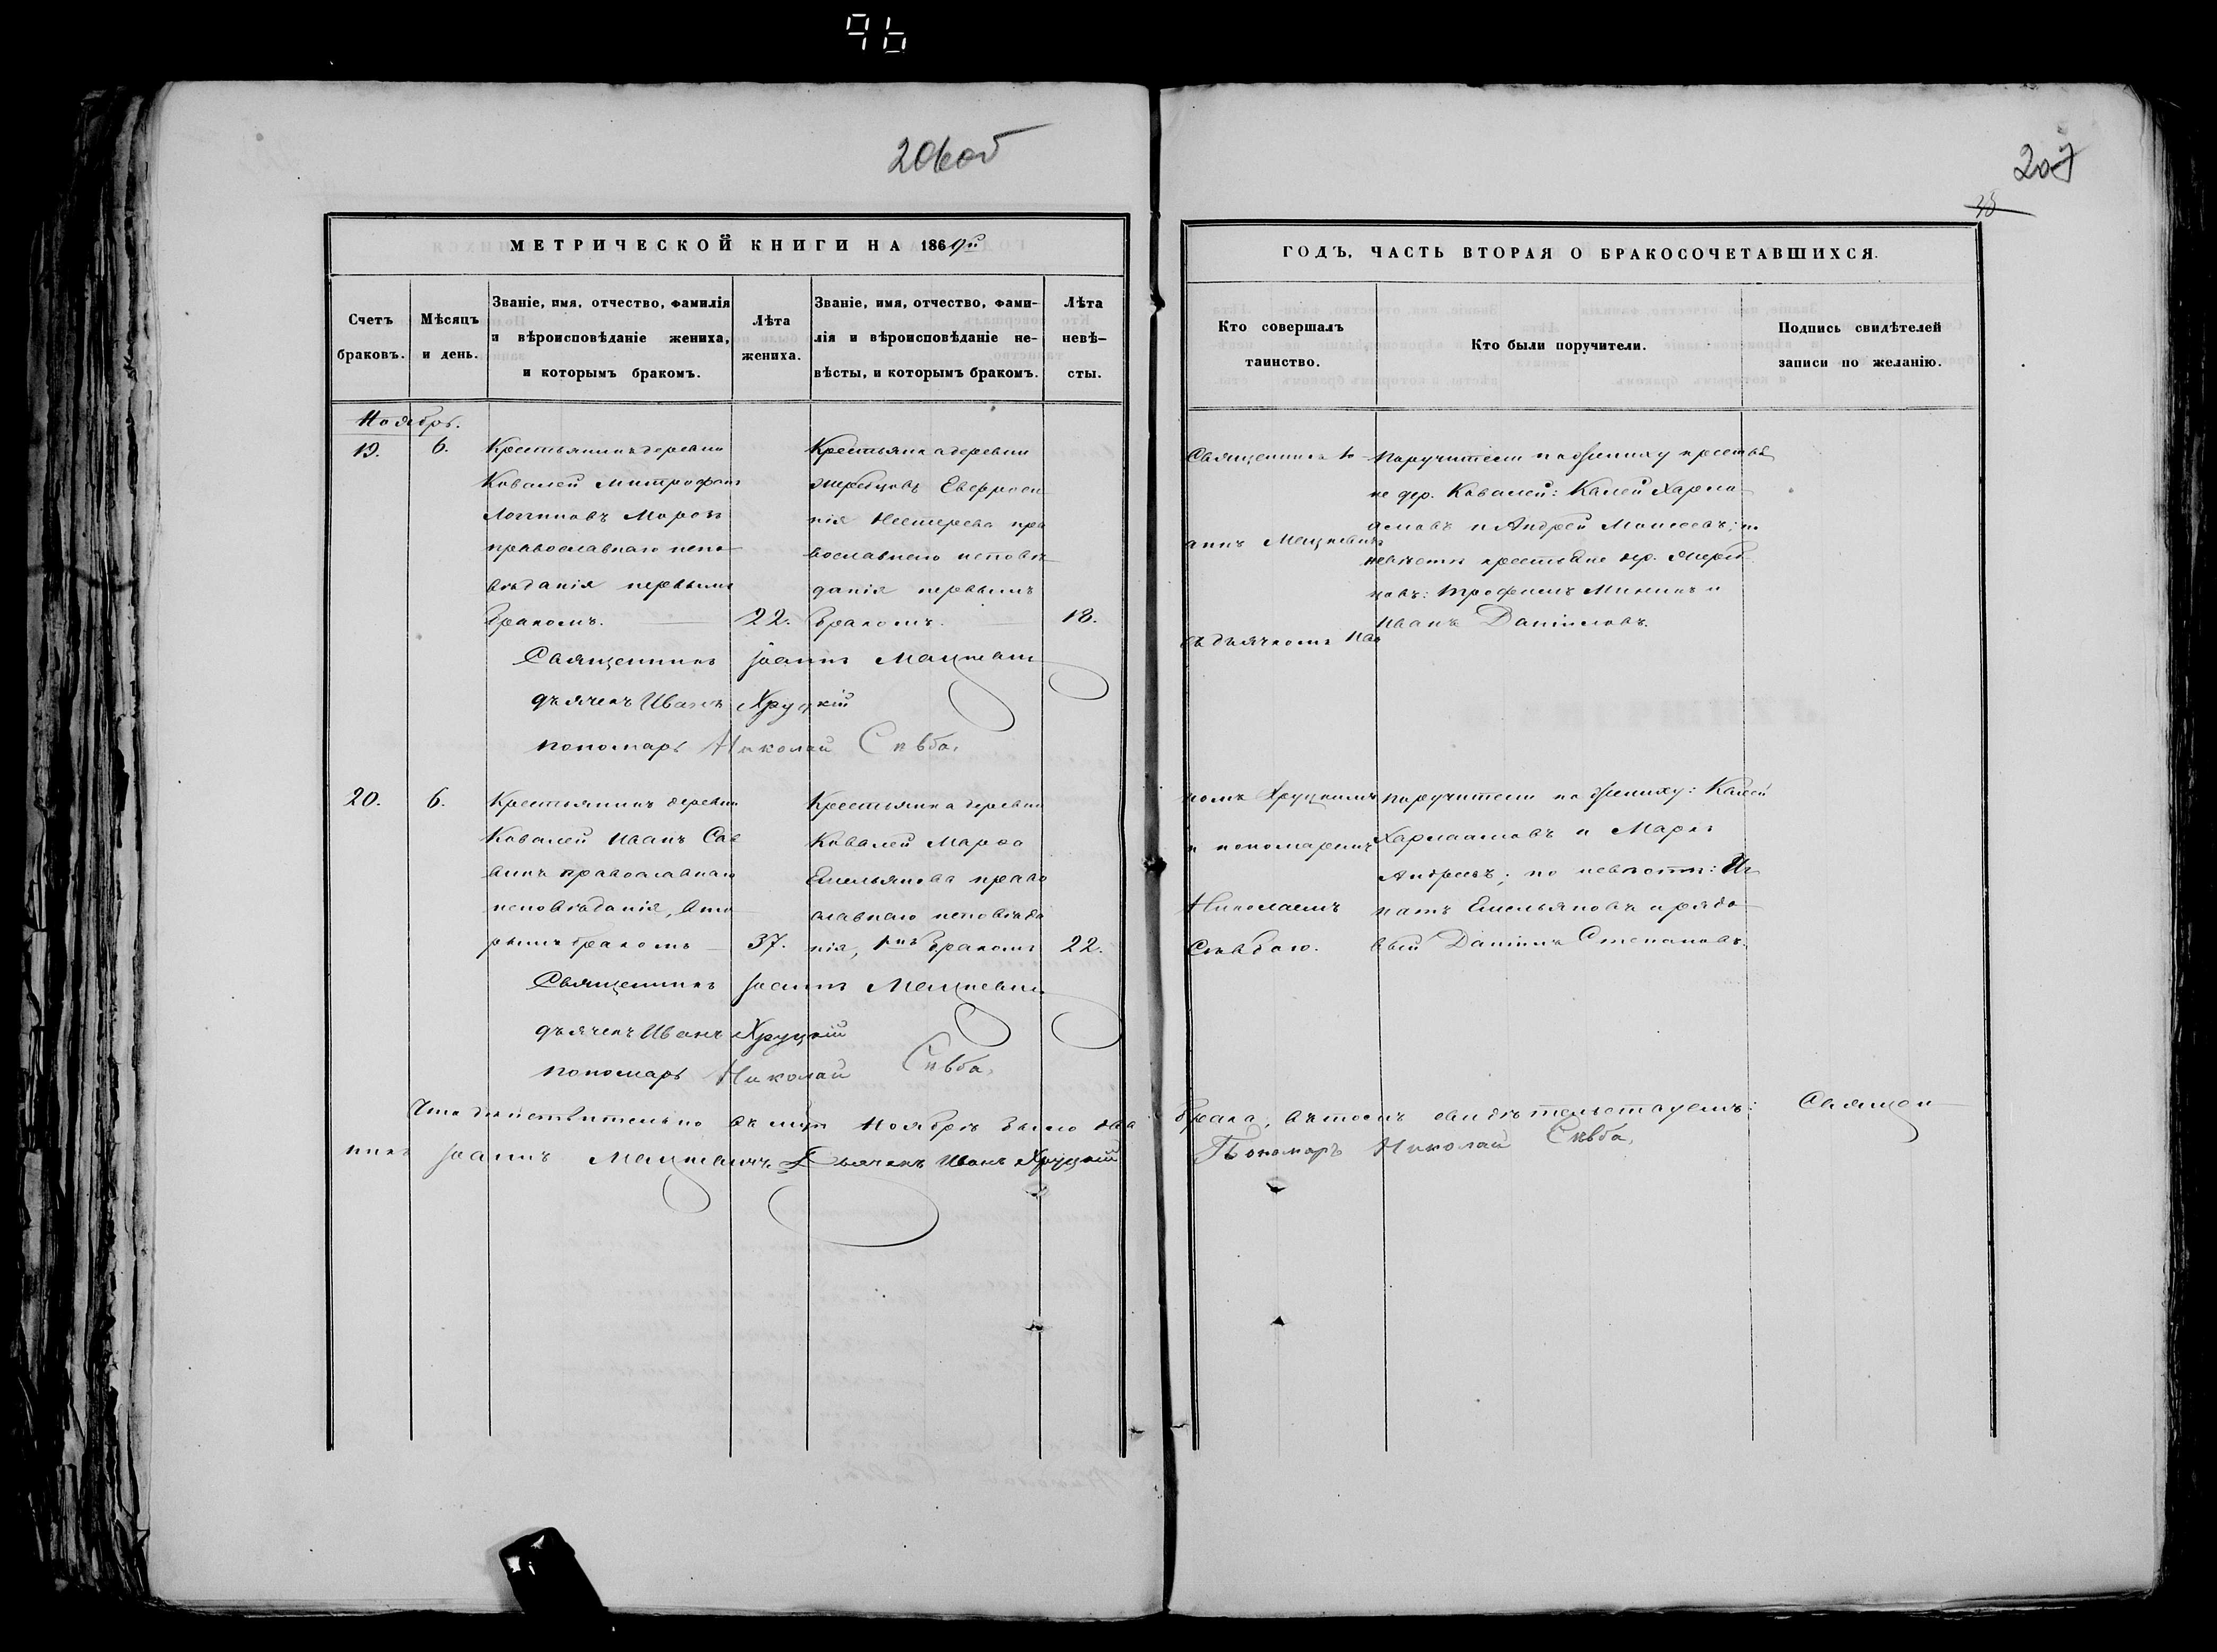 206об
207
38
МЕТРИЧЕСКОЙ КНИГИ НА 1869й
ГОДЪ, ЧАСТЬ ВТОРАЯ О БРАКОСОЧЕТАВШИХСЯ.
Счетъ браковъ.
Мѣсяцъ и день.
Званіе, имя, отчество, фамилія
и вѣроисповѣданіе жениха,
и которымъ бракомъ.
Лѣта
жениха.
Званіе, имя, отчество, фами-
лія и вѣроисповѣданіе не-
вѣсты, и которымъ бракомъ.
Лѣта
невѣ-
сты.
Кто совершалъ
таинство.
Кто были поручители.
Подпись свидѣтелей
записи по желанію.
Ноябрь.
19.
6.
Крестьянинъ деревни
Ковалей Митрофанъ
Логиновъ Морозъ
православнаго испо-
вѣданія первымъ
бракомъ.
22.
Крестьянка деревни
Жеребцовъ Евфроси-
нія Нестерова пра
вославнаго исповѣ-
данія первымъ
бракомъ.
18.
Священникъ Іо-
аннъ Мацкевичъ
съ дьячкомъ Ива
Поручители по жениху крестья
не дер. Ковалей: Калей Харла-
амовъ и Андрей Моисеевъ; по
невѣстѣ крестьяне дер. Жереб-
цовъ: Трофимъ Мининъ и
Иванъ Даниловъ.
Священникъ Іоаннъ Мацкевичъ
дьячекъ Иванъ Хруцкій
пономарь Николай Сѣвба.
20.
6.
Крестьянинъ деревни
Ковалей Иванъ Сав
винъ православнаго
исповѣданія, вто-
рымъ бракомъ
37.
Крестьянка деревни
Ковалей Марѳа
Емельянова право
славнаго исповѣда
нія, 1мъ бракомъ
22.
номъ Хруцкимъ
и пономаремъ
Николаемъ
Сѣвбою.
Поручители по жениху: Калей
Харлаамовъ и Маркъ
Андреевъ; по невѣстѣ: Иг
натъ Емельяновъ и рядо-
вый Даніилъ Степановъ.
Священникъ Іоаннъ Мацкевичъ
дьячекъ Иванъ Хруцкій
пономарь Николай Сѣвба.
Что дѣйствительно въ мцѣ Ноябрѣ было два брака, въ томъ свидѣтельствуемъ: Священ-
никъ Іоаннъ Мацкевичъ Дьячекъ Иванъ Хруцкій Пономарь Николай Сѣвба.